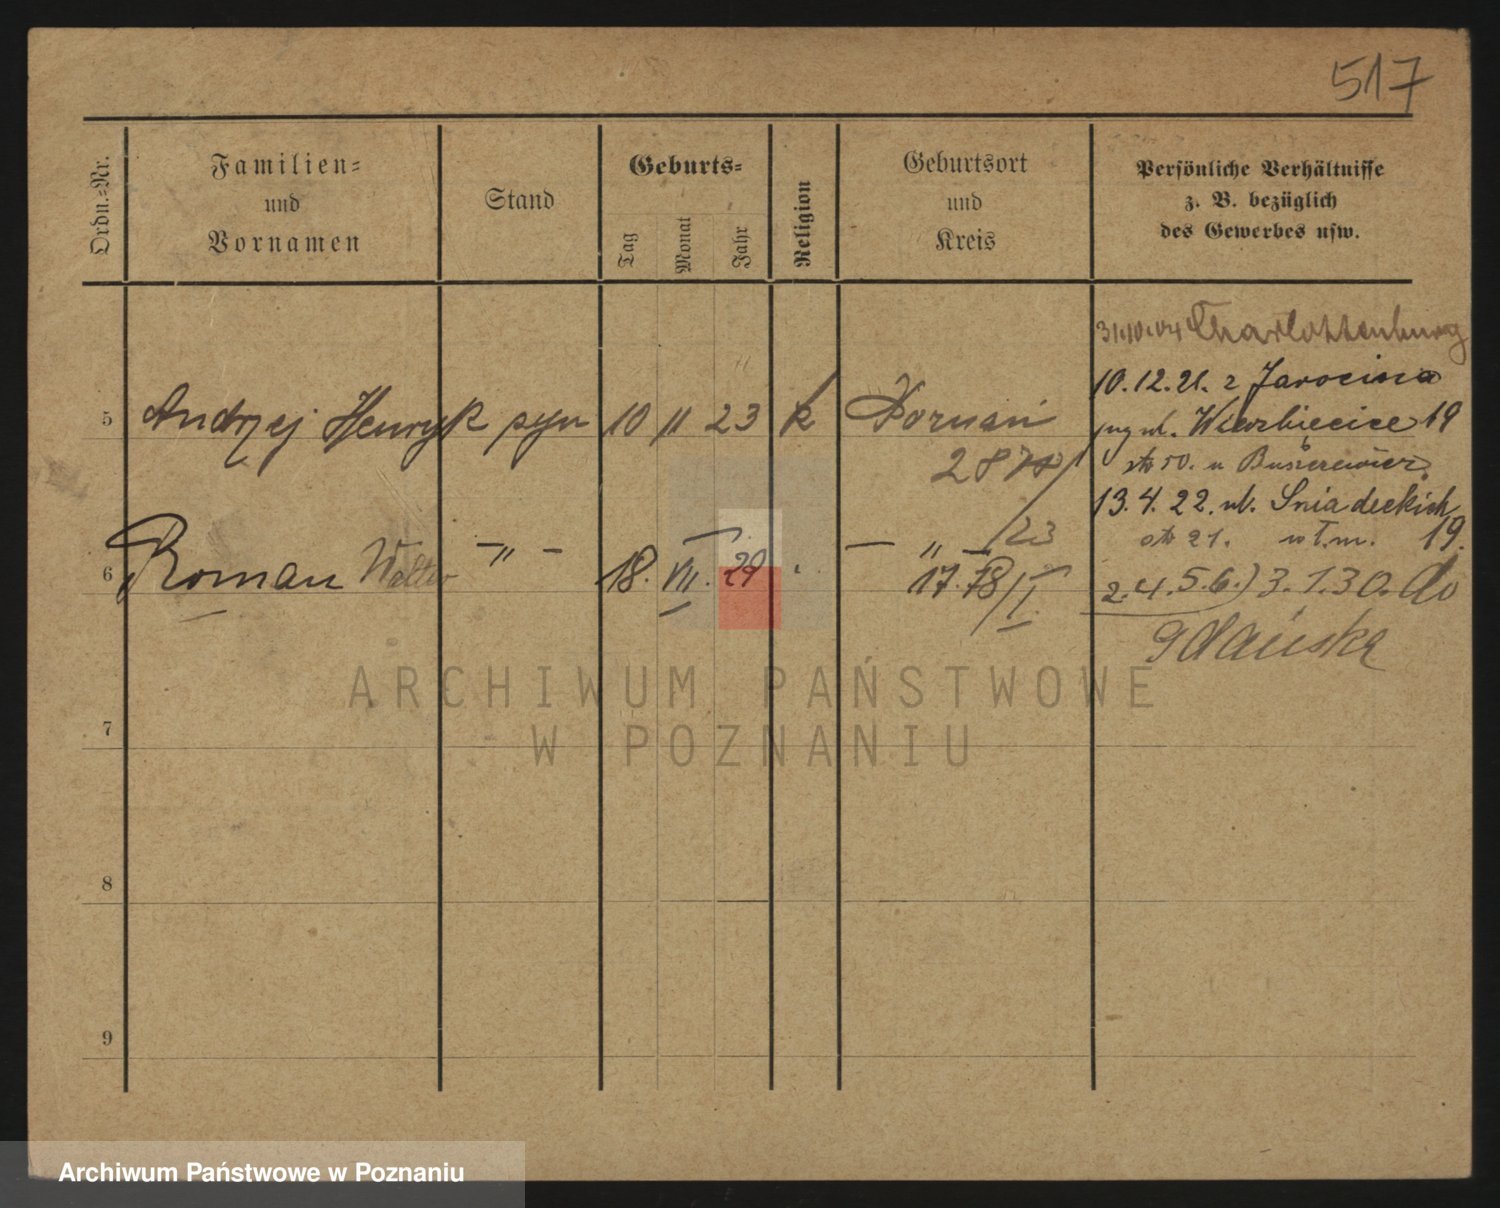 517
Ordn.-Nr.
Familien-
und
Vornamen
Stand
Geburts-
Tag
Monat
Jahr
Religion
Geburtsort
und
Kreis
Persönliche Verhältnisse
z. B. bezüglich
des Gewerbes usw.
31.10.04 Charlottenburg
10.12.21. z Jarocina
ul. Wierzbięcice 19
5 Andrzej Henryk syn 10 11 23 k Poznań
2878/23
50. u
13.4.22. ul. Śniadeckich 19.
21. w t.m.
6 Roman Walter — " — 18. VII. 29 — " —
17.78/I
2.4.5.6.) 3.1.30. do
Gdańska
7
8
9
ARCHIWUM PAŃSTWOWE
W POZNANIU
Archiwum Państwowe w Poznaniu